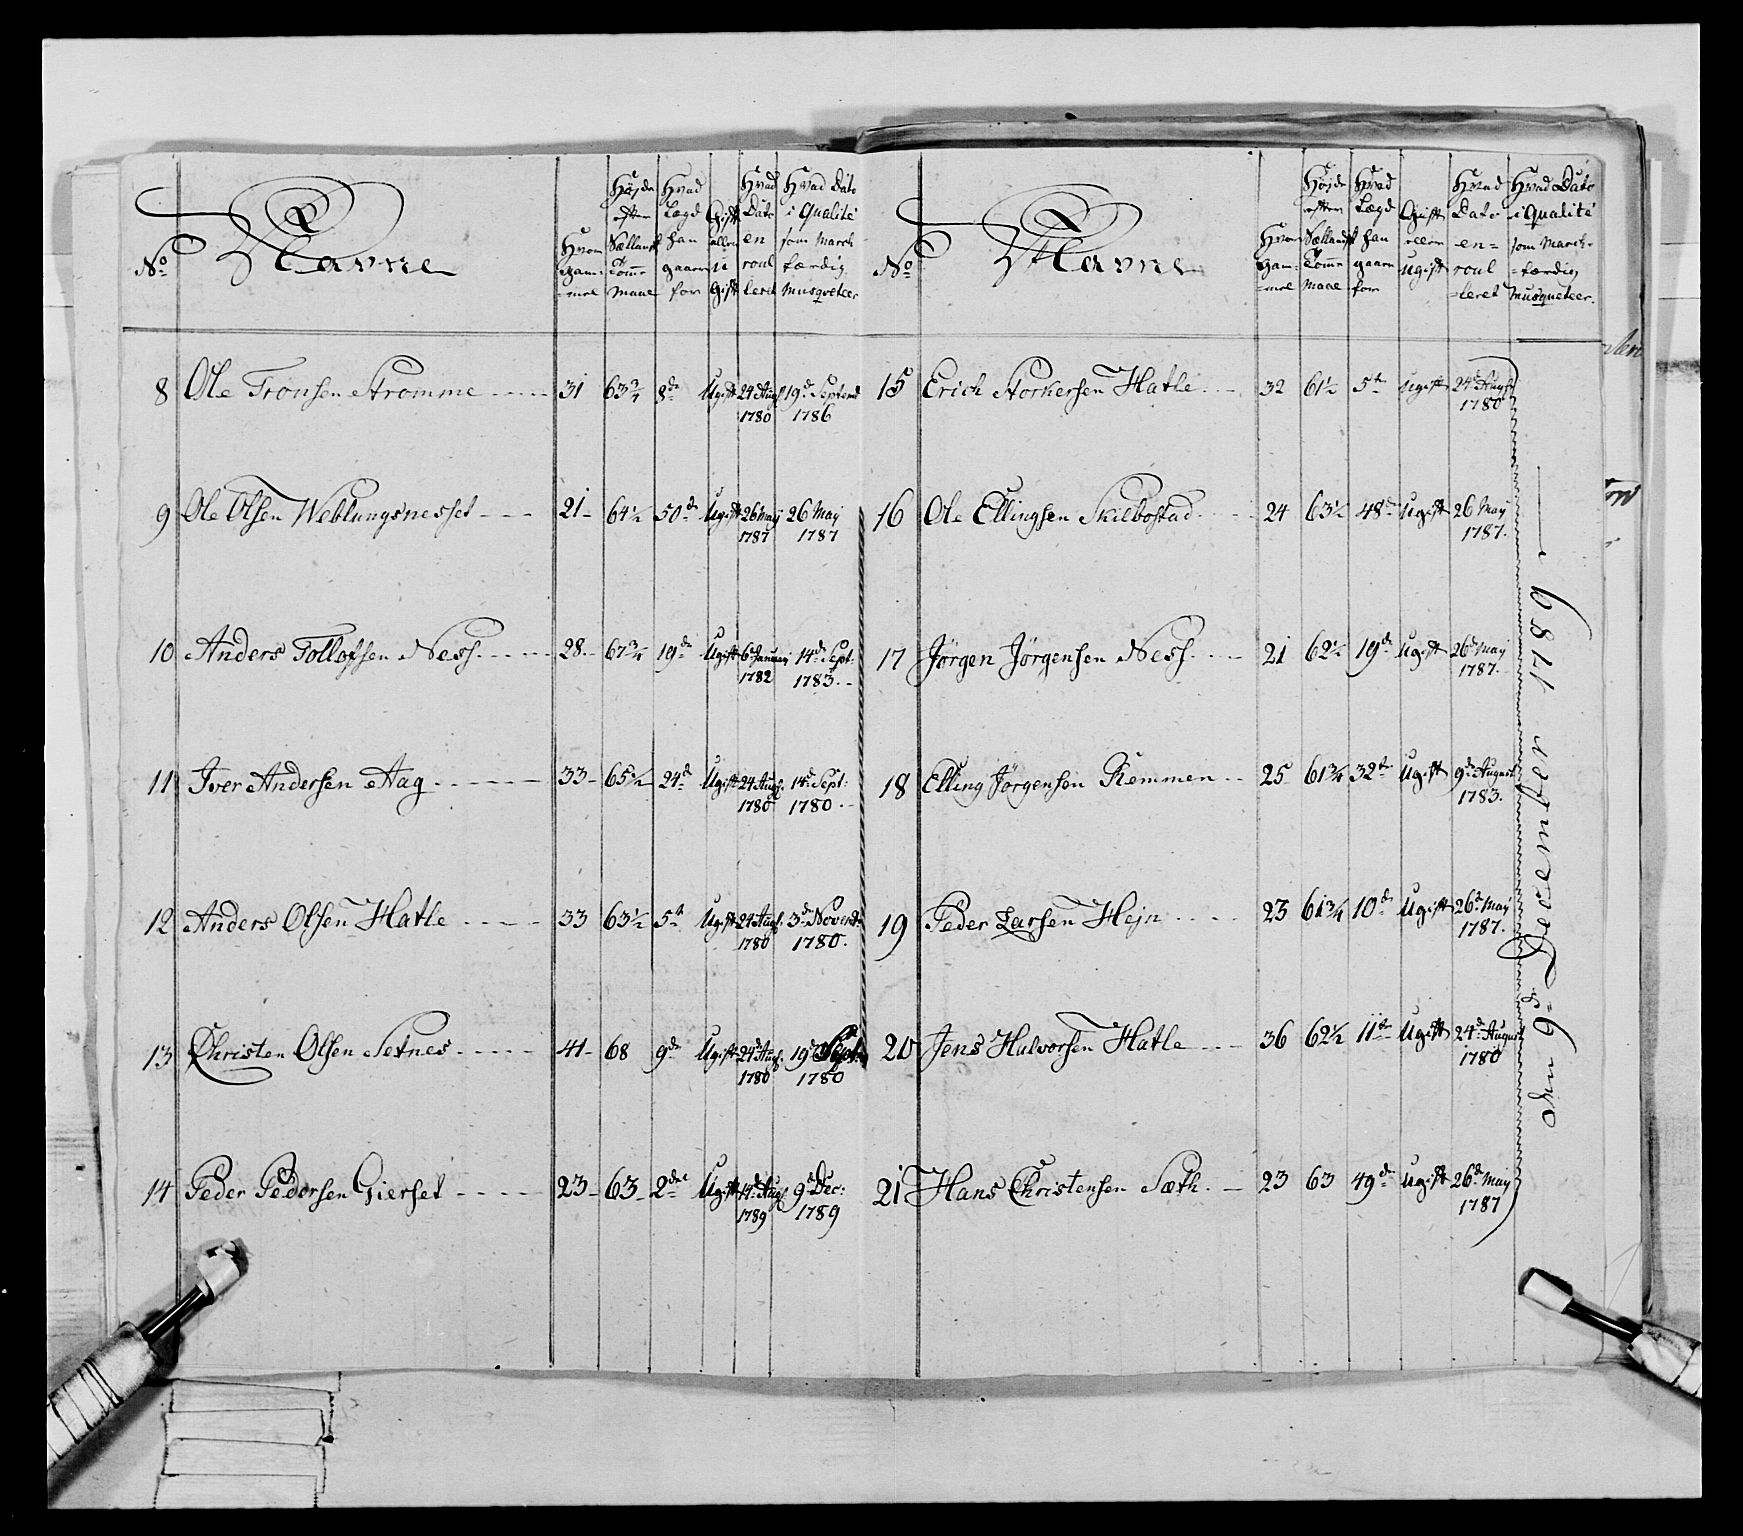 No Navne Hvor gam=mel Højde efter Sællandsk Tomme Maal Hvad Lægd han gaaer for Gift eller u Gift Hvad Dato en roul leret Hvad Dato i Qualité som March færdig Musqveteer
8 Ole Tronsen Stromme 31 63 3/4 8de Ugift 24 Aug 1780 19d Septemb 1786
9 Ole Olsen Weblungsnesset 21 64 1/2 50de Ugift 26 May 1787 26 May 1787
10 Anders Tollofsen Ness 28 67 3/4 19de Ugift 6d Januarj 1782 14d Sept: 1783
11 Iver Andersen Aag 33 65 1/2 24de Ugift 24 Aug: 1780 14d Sept: 1780
12 Anders Olsen Hatle 33 63 1/2 5te Ugift 24 Aug: 1780 3d Novemb 1780
13 Christen Olsen Setnes 41 68 9de Ugift 24d Aug: 1780 19d Sept: 1780
14 Peder Pedersen Gierset 23 63 2de Ugift 14d Aug 1789 9d Dec: 1789
No Navne Hvor gam=mel Højde efter Sællandsk Tomme Maal Hvad Lægd han gaaer for Gift eller ugift Hvad Dato en=roul=leret Hvad Dato i Qualité som March=færdig Musqueteer.
15 Erich Storkersen Hatle 32 61 1/2 5te Ugift 24d Augst 1780
16 Ole Ellingsen Skilbostad 24 63 1/2 48de Ugift 26 May 1787.
17 Jørgen Jørgensen Ness 21 62 1/2 19de Ugift 26d May 1787.
18 Elling Jørgensen Remmen 25 61 3/4 32te Ugift 9d August 1783.
19 Peder Larsen Hejn 23 61 3/4 10de Ugift 26d May 1787.
20 Jens Halvorsen Hatle 36 62 1/2 11te Ugift 24d August 1780
21 Hans Christensen Sæth 23 63 49de Ugift 26d May 1787
den 9d December 1789